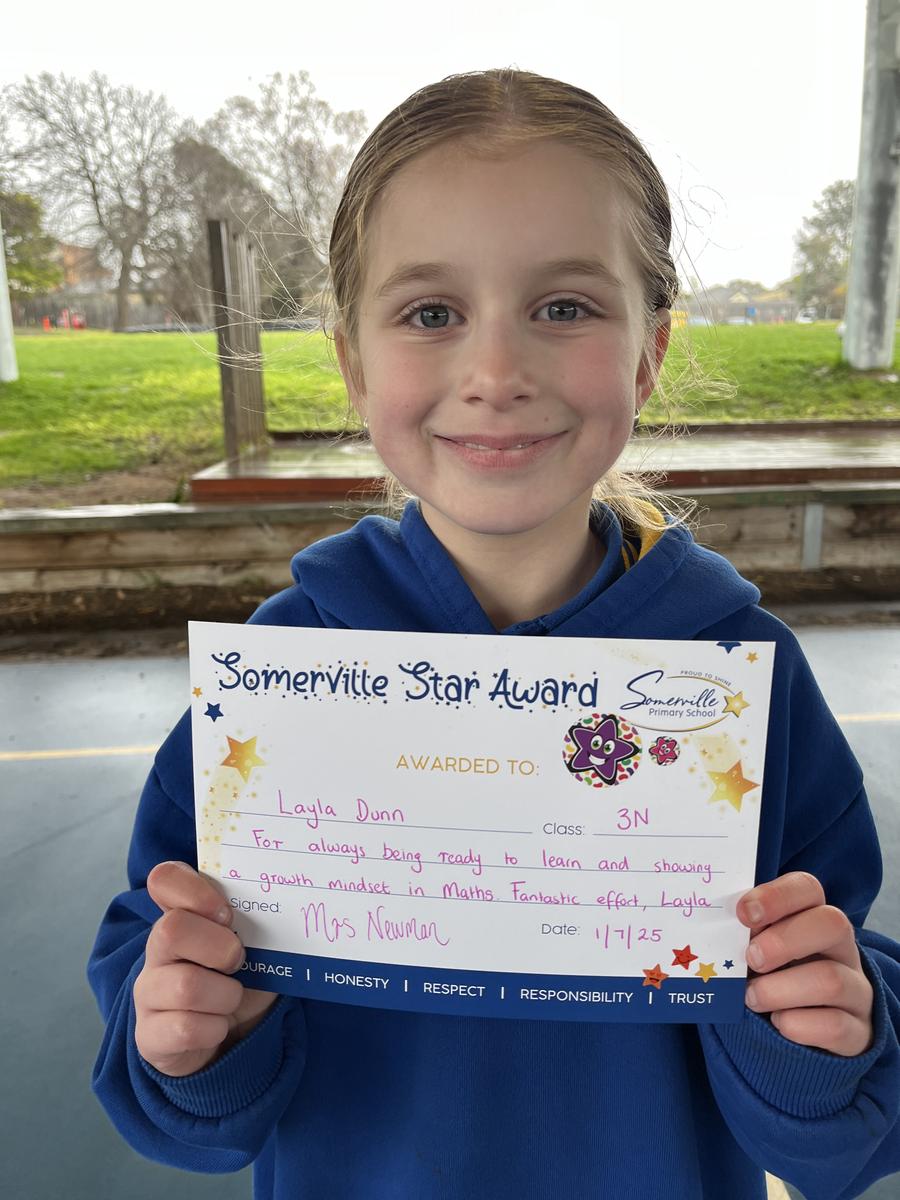 Somerville Star Award
PROUD TO SHINE
Somerville
Primary School
AWARDED TO:
Layla Dunn Class: 3N
For always being ready to learn and showing
a growth mindset in Maths. Fantastic effort, Layla
Signed: Mrs Newman Date: 1/7/25
OURAGE | HONESTY | RESPECT | RESPONSIBILITY | TRUST